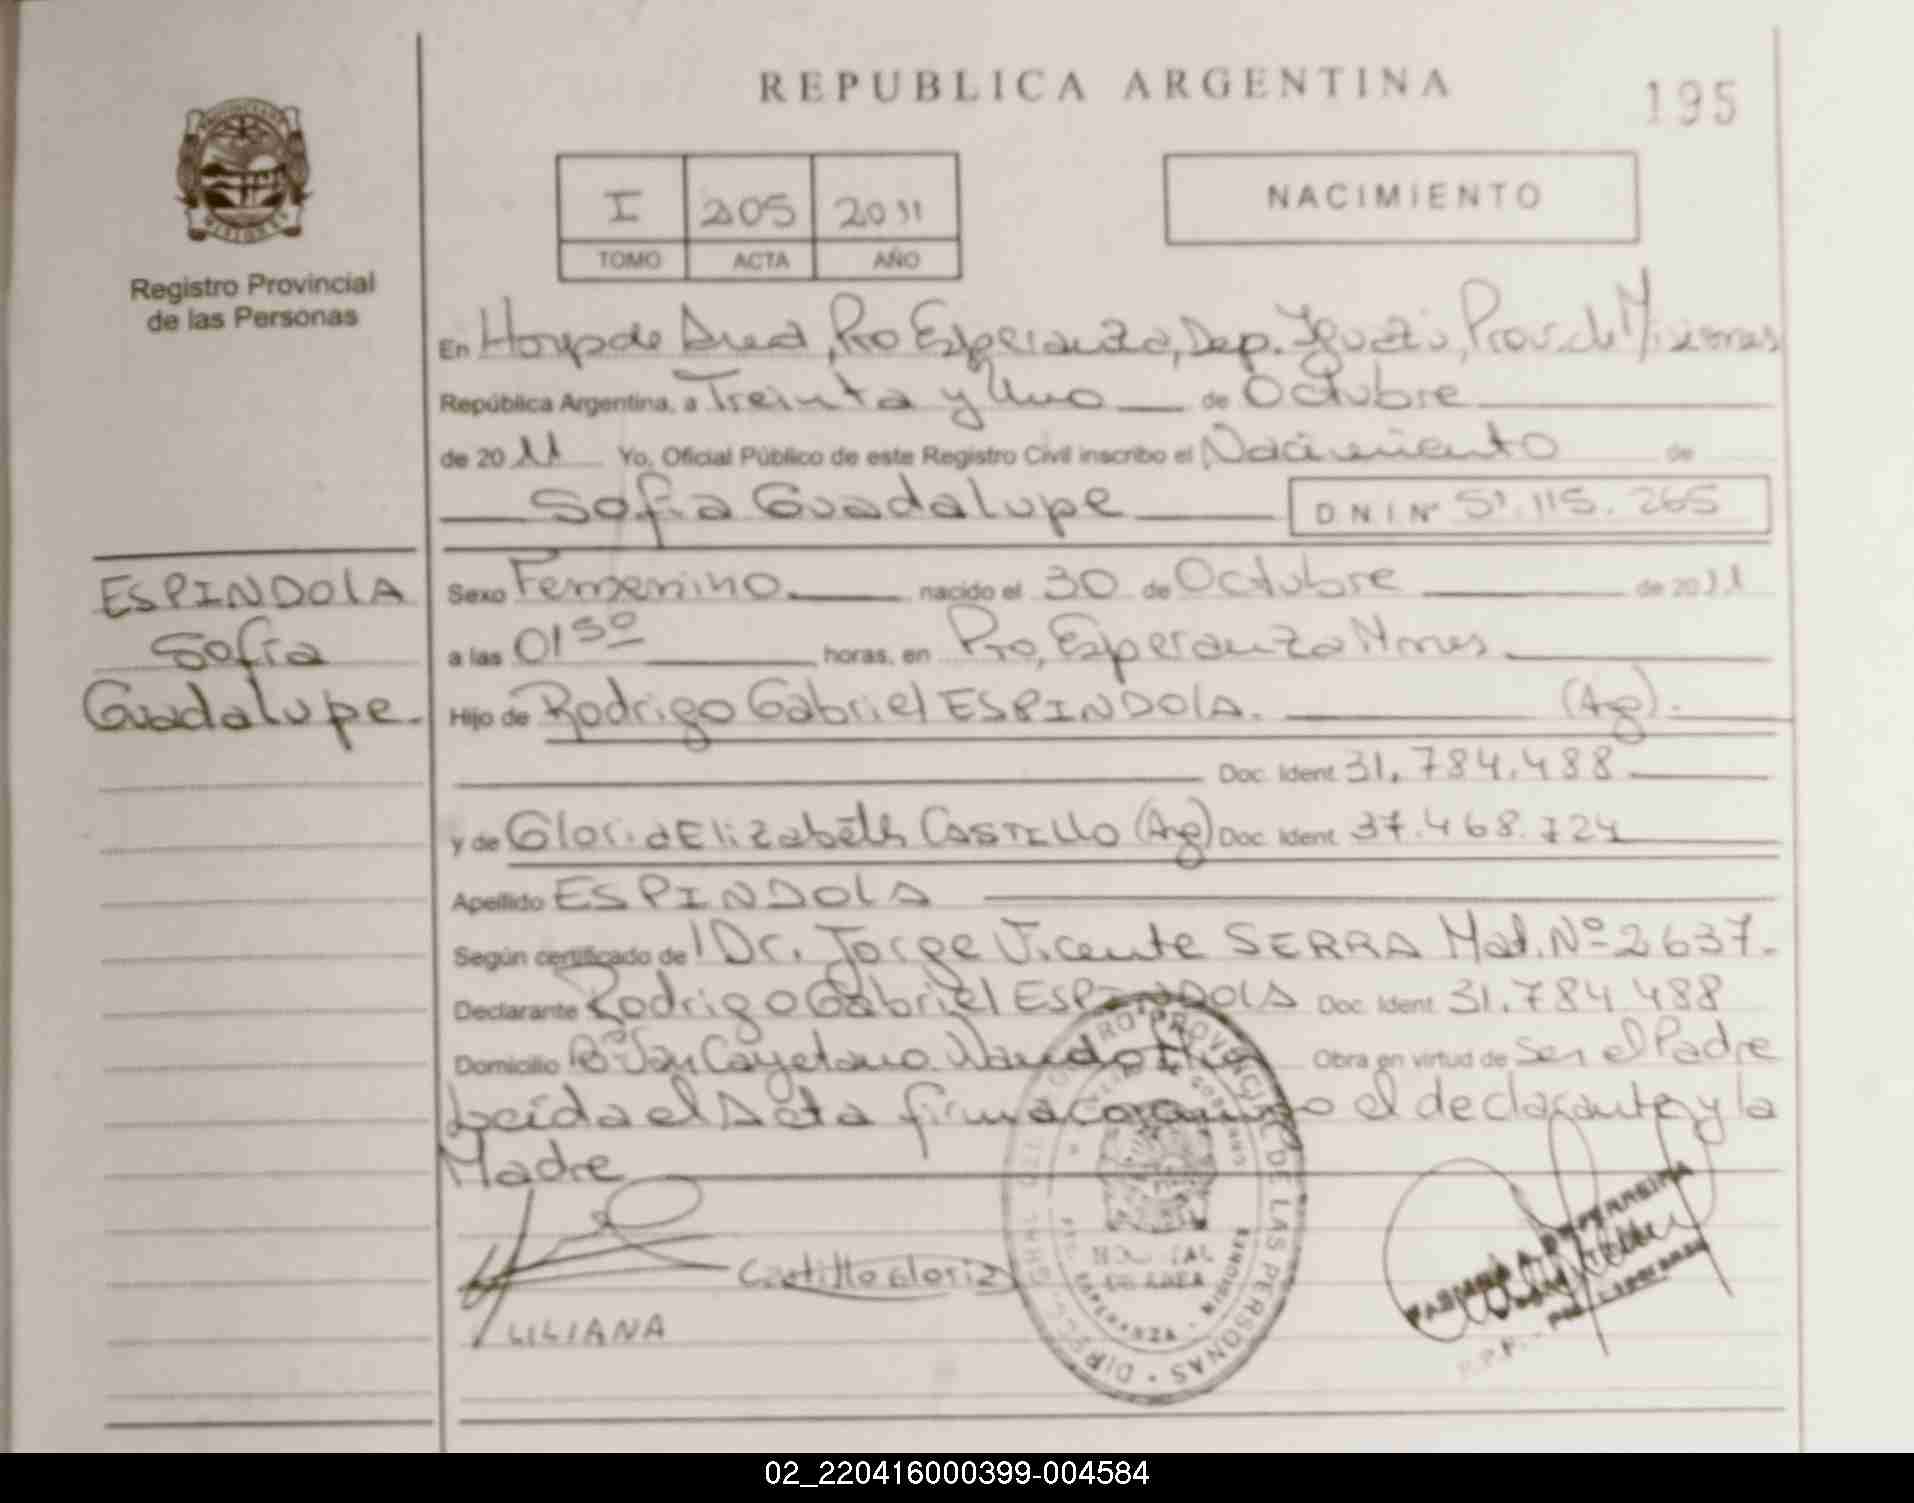 REPUBLICA ARGENTINA
195
I 205 2011
TOMO ACTA AÑO
NACIMIENTO
Registro Provincial
de las Personas
En Hosp de Area, Pto Esperanza, Dep. Iguazú, Prov. de Misiones
República Argentina, a Treinta y Uno de Octubre
de 2011 Yo, Oficial Público de este Registro Civil inscribo el Nacimiento de
Sofía Guadalupe DNI Nº 51.115.265
ESPINDOLA
Sofía
Guadalupe.
Sexo Femenino nacido el 30 de Octubre de 2011
a las 01 50 horas, en Pto, Esperanza Mnes
Hijo de Rodrigo Gabriel ESPINDOLA. (Arg).
Doc. Ident 31.784.488
y de Gloria Elizabeth CASTILLO (Arg) Doc. Ident. 37.468.724
Apellido ESPINDOLA
Según certificado de Dr. Jorge Vicente SERRA Mat. Nº 2637.
Declarante Rodrigo Gabriel ESPINDOLA Doc. Ident. 31.784.488
Domicilio Bº San Cayetano. Wanda Obra en virtud de ser el Padre
Leída el Acta firma conmigo el declarante y la
Madre
Castillo Gloria
LILIANA
REGISTRO PROVINCIAL DE LAS PERSONAS
HOSPITAL
DE AREA
ESPERANZA - MISIONES
PEREIRA
02_220416000399-004584